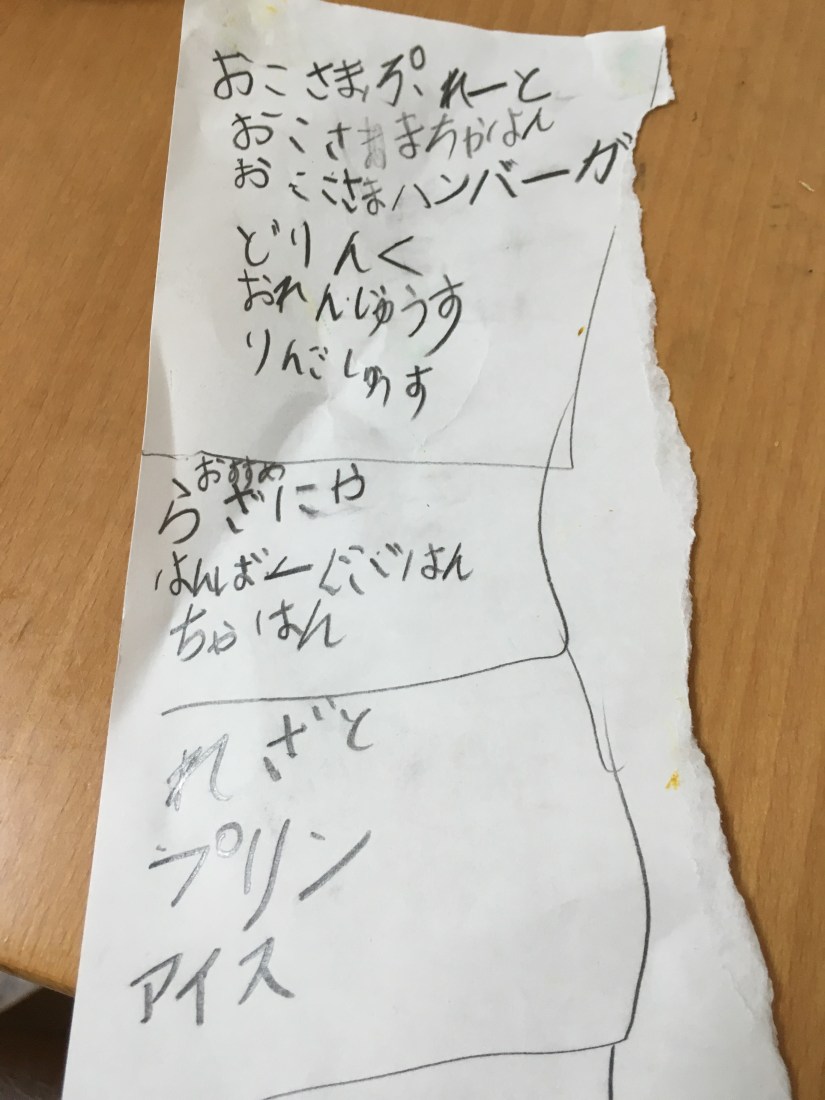 おこさまぷれーと
おこさまちゃはん
おこさまハンバーガ
どりんく
おれんじゅうす
りんごしゅす
おすすめ
らざにや
はんばーぐごはん
ちゃはん
れざと
プリン
アイス